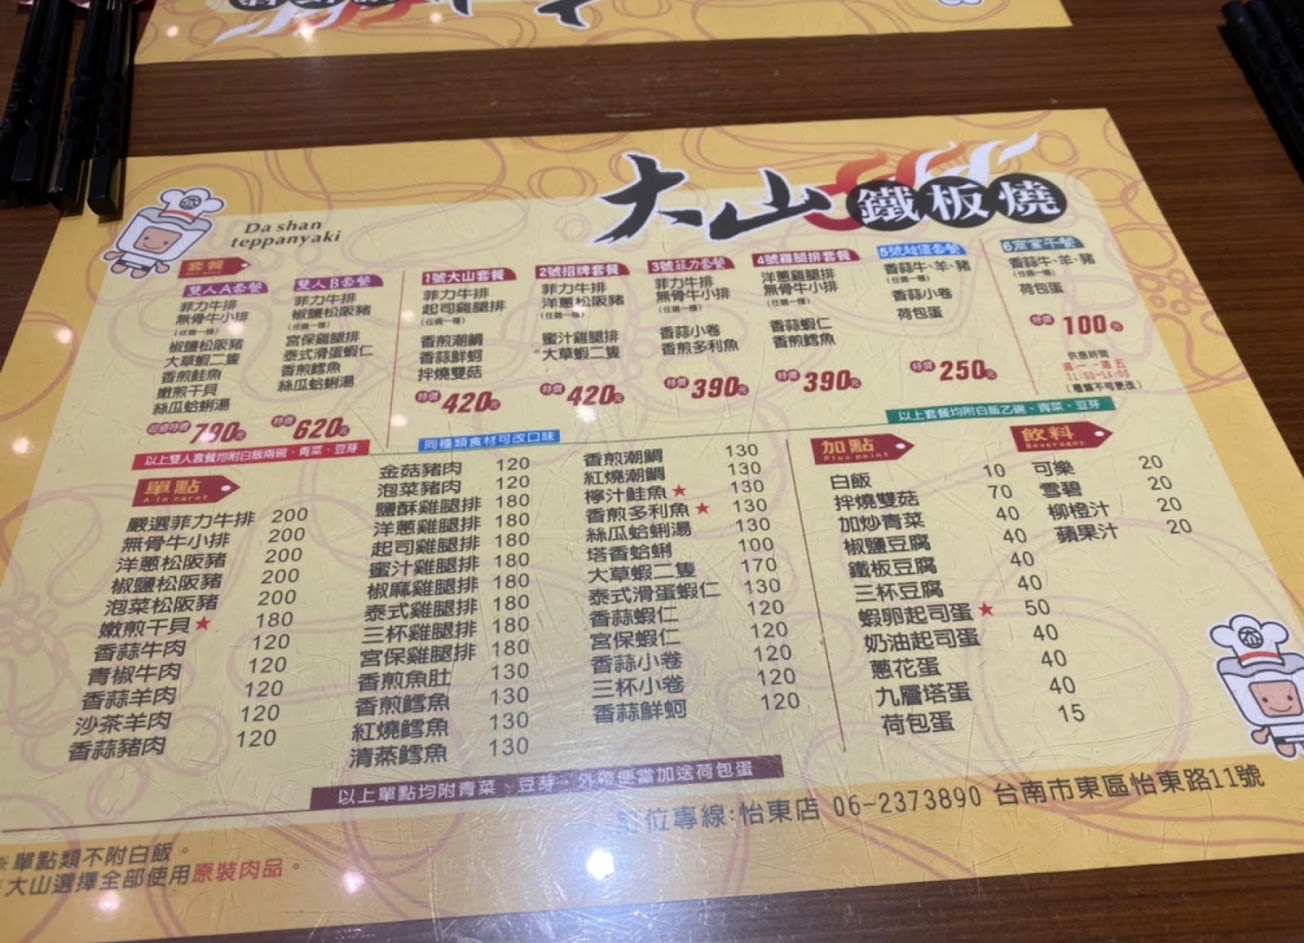 大山 鐵板燒
Da shan
teppanyaki
套餐
雙人A套餐
菲力牛排
無骨牛小排
(任選一種)
椒鹽松阪豬
大草蝦二隻
香煎鮭魚
嫩煎干貝
絲瓜蛤蜊湯
790元
雙人B套餐
菲力牛排
椒鹽松阪豬
(任選一種)
宮保雞腿排
泰式滑蛋蝦仁
香煎鱈魚
絲瓜蛤蜊湯
特價 620元
以上雙人套餐均附白飯兩碗、青菜、豆芽
1號大山套餐
菲力牛排
起司雞腿排
(任選一種)
香煎潮鯛
香蒜鮮蚵
拌燒雙菇
特價 420元
2號招牌套餐
菲力牛排
洋蔥松阪豬
(任選一種)
蜜汁雞腿排
大草蝦二隻
特價 420元
3號菲力套餐
菲力牛排
無骨牛小排
(任選一種)
香蒜小卷
香煎多利魚
特價 390元
4號雞腿排套餐
洋蔥雞腿排
無骨牛小排
(任選一種)
香蒜蝦仁
香煎鱈魚
特價 390元
5號超值套餐
香蒜牛、羊、豬
(任選一種)
香蒜小卷
荷包蛋
特價 250元
6商業午餐
香蒜牛、羊、豬
(任選一種)
荷包蛋
特價 100元
供應時間
週一~週五
(種類不可更改)
同種類食材可改口味
以上套餐均附白飯乙碗、青菜、豆芽
單點
A la caret
嚴選菲力牛排 200
無骨牛小排 200
洋蔥松阪豬 200
椒鹽松阪豬 200
泡菜松阪豬 200
嫩煎干貝★ 180
香蒜牛肉 120
青椒牛肉 120
香蒜羊肉 120
沙茶羊肉 120
香蒜豬肉 120
金菇豬肉 120
泡菜豬肉 120
鹽酥雞腿排 180
洋蔥雞腿排 180
起司雞腿排 180
蜜汁雞腿排 180
椒麻雞腿排 180
泰式雞腿排 180
三杯雞腿排 180
宮保雞腿排 180
香煎魚肚 130
香煎鱈魚 130
紅燒鱈魚 130
清蒸鱈魚 130
香煎潮鯛 130
紅燒潮鯛 130
檸汁鮭魚★ 130
香煎多利魚★ 130
絲瓜蛤蜊湯 130
塔香蛤蜊 100
大草蝦二隻 170
泰式滑蛋蝦仁 130
香蒜蝦仁 120
宮保蝦仁 120
香蒜小卷 120
三杯小卷 120
香蒜鮮蚵 120
加點
Plus point
白飯 10
拌燒雙菇 70
加炒青菜 40
椒鹽豆腐 40
鐵板豆腐 40
三杯豆腐 40
蝦卵起司蛋★ 50
奶油起司蛋 40
蔥花蛋 40
九層塔蛋 40
荷包蛋 15
飲料
Beverages
可樂 20
雪碧 20
柳橙汁 20
蘋果汁 20
以上單點均附青菜、豆芽、外帶便當加送荷包蛋
訂位專線:怡東店 06-2373890 台南市東區怡東路11號
※單點類不附白飯。
大山選擇全部使用原裝肉品。